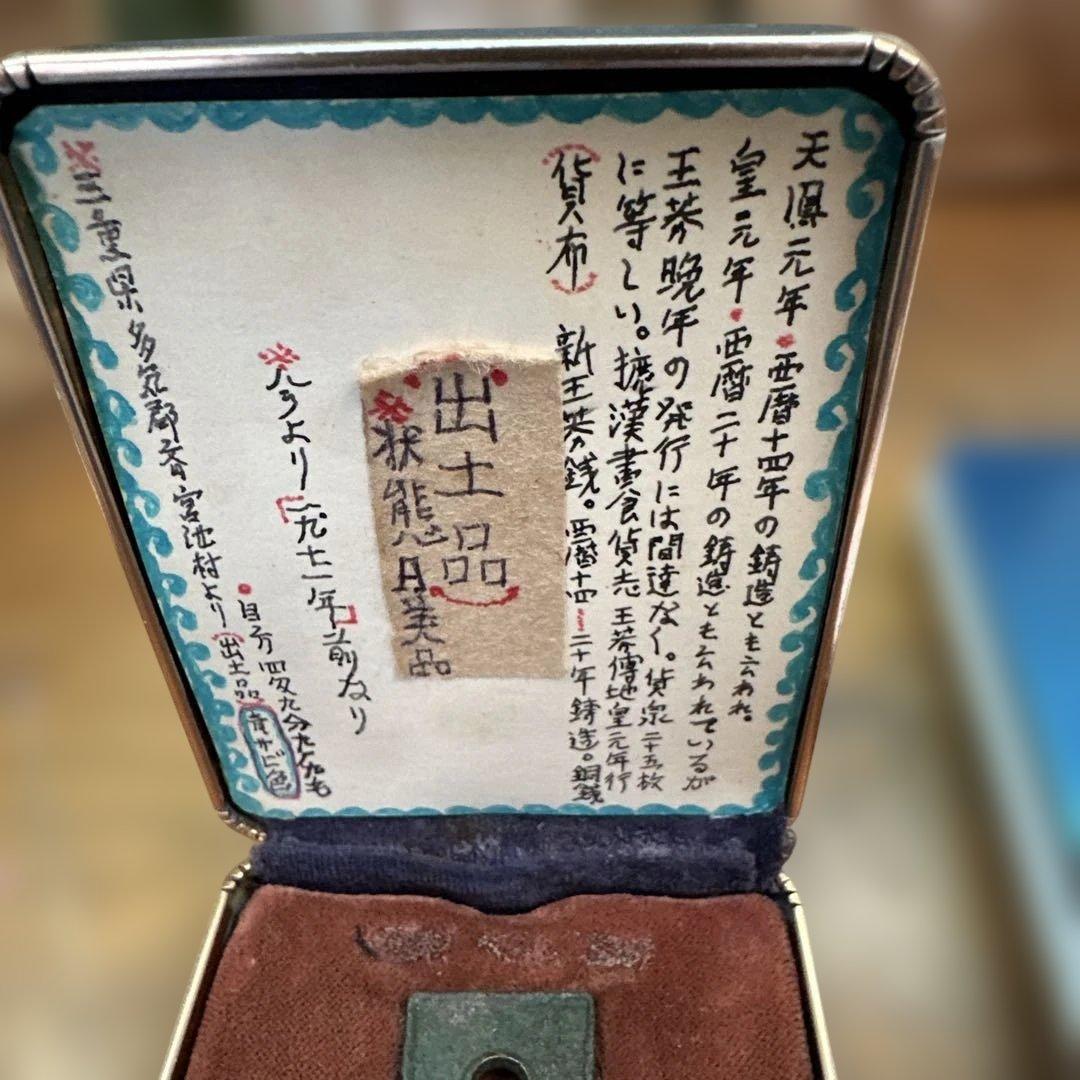 天鳳元年•西暦十四年の鋳造とも云われ。
皇元年•西暦二十年の鋳造とも云われているが
王莽晩年の発行には間違なく。貨泉二十五枚
に等しい。摭漢書食貨志王莽傳地皇元年行
(貨布) 新王莽銭。西暦十四〜二十年鋳造。銅銭
出土品
※状態月美品
※今より「一九七一年」前なり
•目方四匁九分
※三重県多気郡斉宮池村より(出土品)
青サビ色